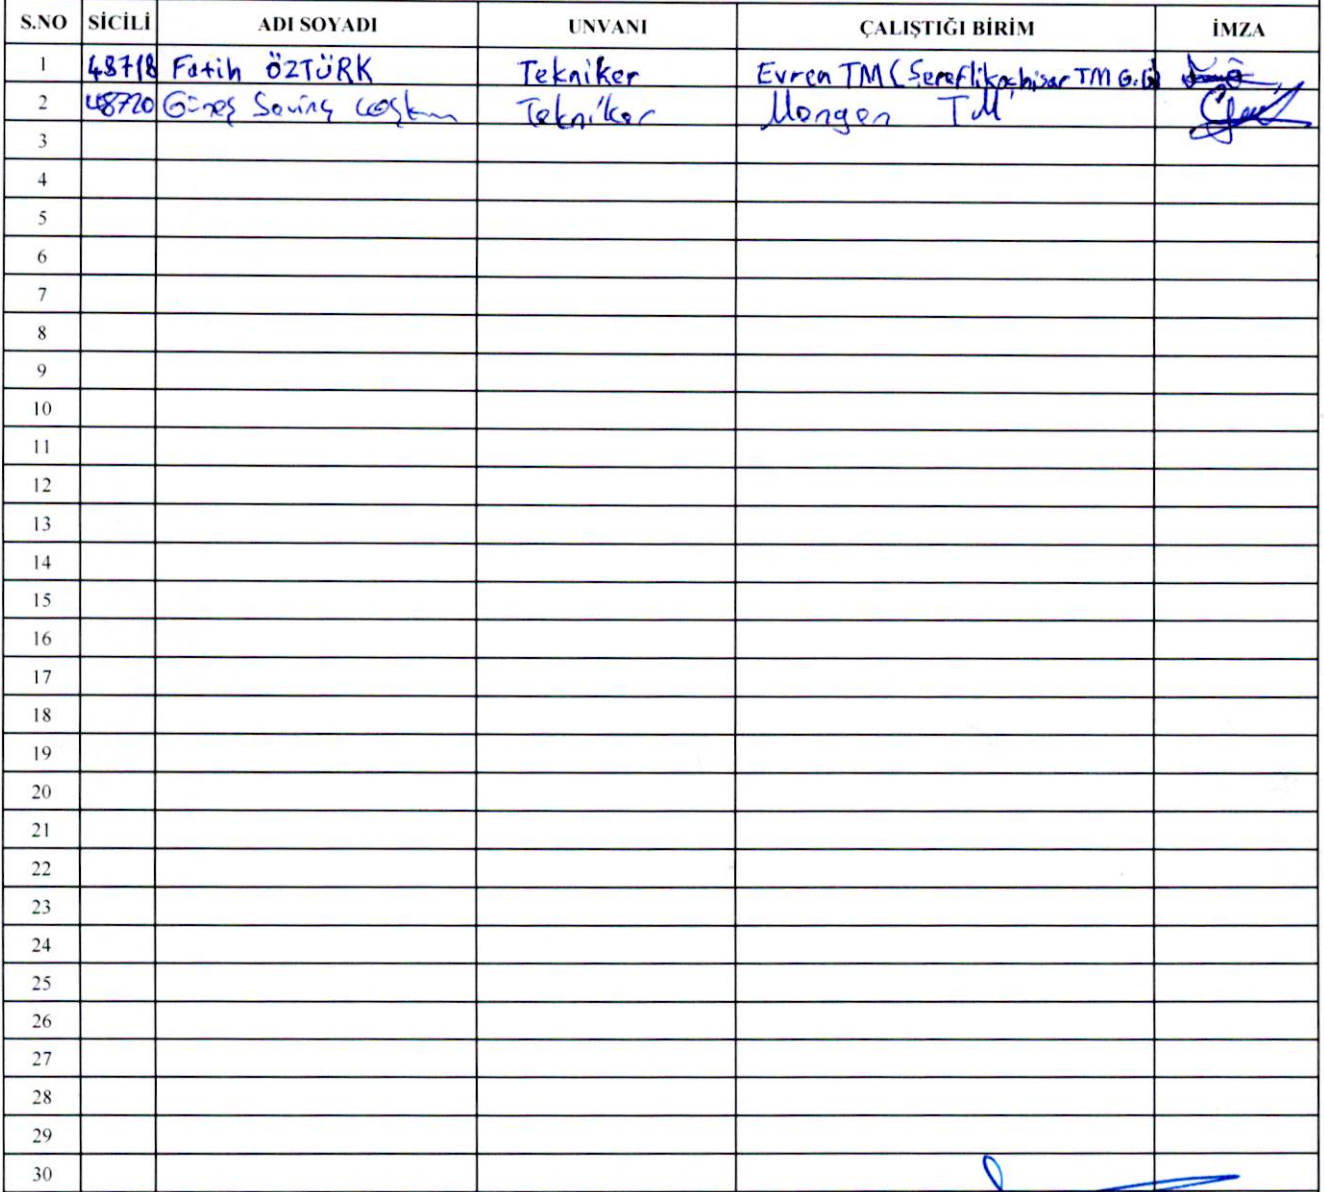 S.NO SİCİLİ ADI SOYADI UNVANI ÇALIŞTIĞI BİRİM İMZA
1 48718 Fatih ÖZTÜRK Tekniker Evren TM (Şereflikoçhisar TM G.G)
2 48720 Güneş Sevinç Coşkun Tekniker Mengen TM
3
4
5
6
7
8
9
10
11
12
13
14
15
16
17
18
19
20
21
22
23
24
25
26
27
28
29
30